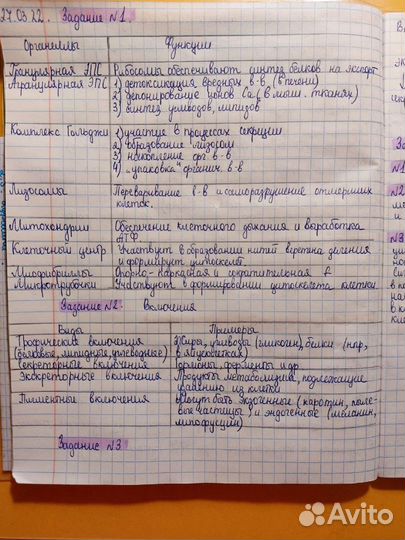 27.03.22. Задание №1
Органеллы Функции
Гранулярная ЭПС Рибосомы обеспечивают синтез белков на экспорт
Агранулярная ЭПС 1) детоксикация вредных в-в (в печени)
2) депонирование ионов Ca (в мыш. тканях)
3) синтез углеводов, липидов
Комплекс Гольджи 1) участие в процессах секреции
2) образование лизосом
3) накопление орг в-в
4) "упаковка" органич. в-в
Лизосомы Переваривание в-в и саморазрушение отмерших
клеток.
Митохондрии Обеспечение клеточного дыхания и выработка
АТФ
Клеточный центр Участвует в образовании нитей веретена деления
и формирует цитоскелет.
Миофибриллы Опорно-каркасная и сократительная f
Микротрубочки Участвуют в формировании цитоскелета клетки
Задание №2. Включения
Виды Примеры
Трофические включения Жиры, углеводы (гликоген), белки (напр,
(белковые, липидные, углеводнее) в яйцеклетках)
Секреторные включения Гормоны, ферменты и др
Экскреторные включения Продукты метаболизма, подлежащие
удалению из клетки
Пигментные включения Могут быть экзогенные (каротин, пыле-
вые частицы) и эндогенные (меланин,
липофусцин)
Задание №3
Avito